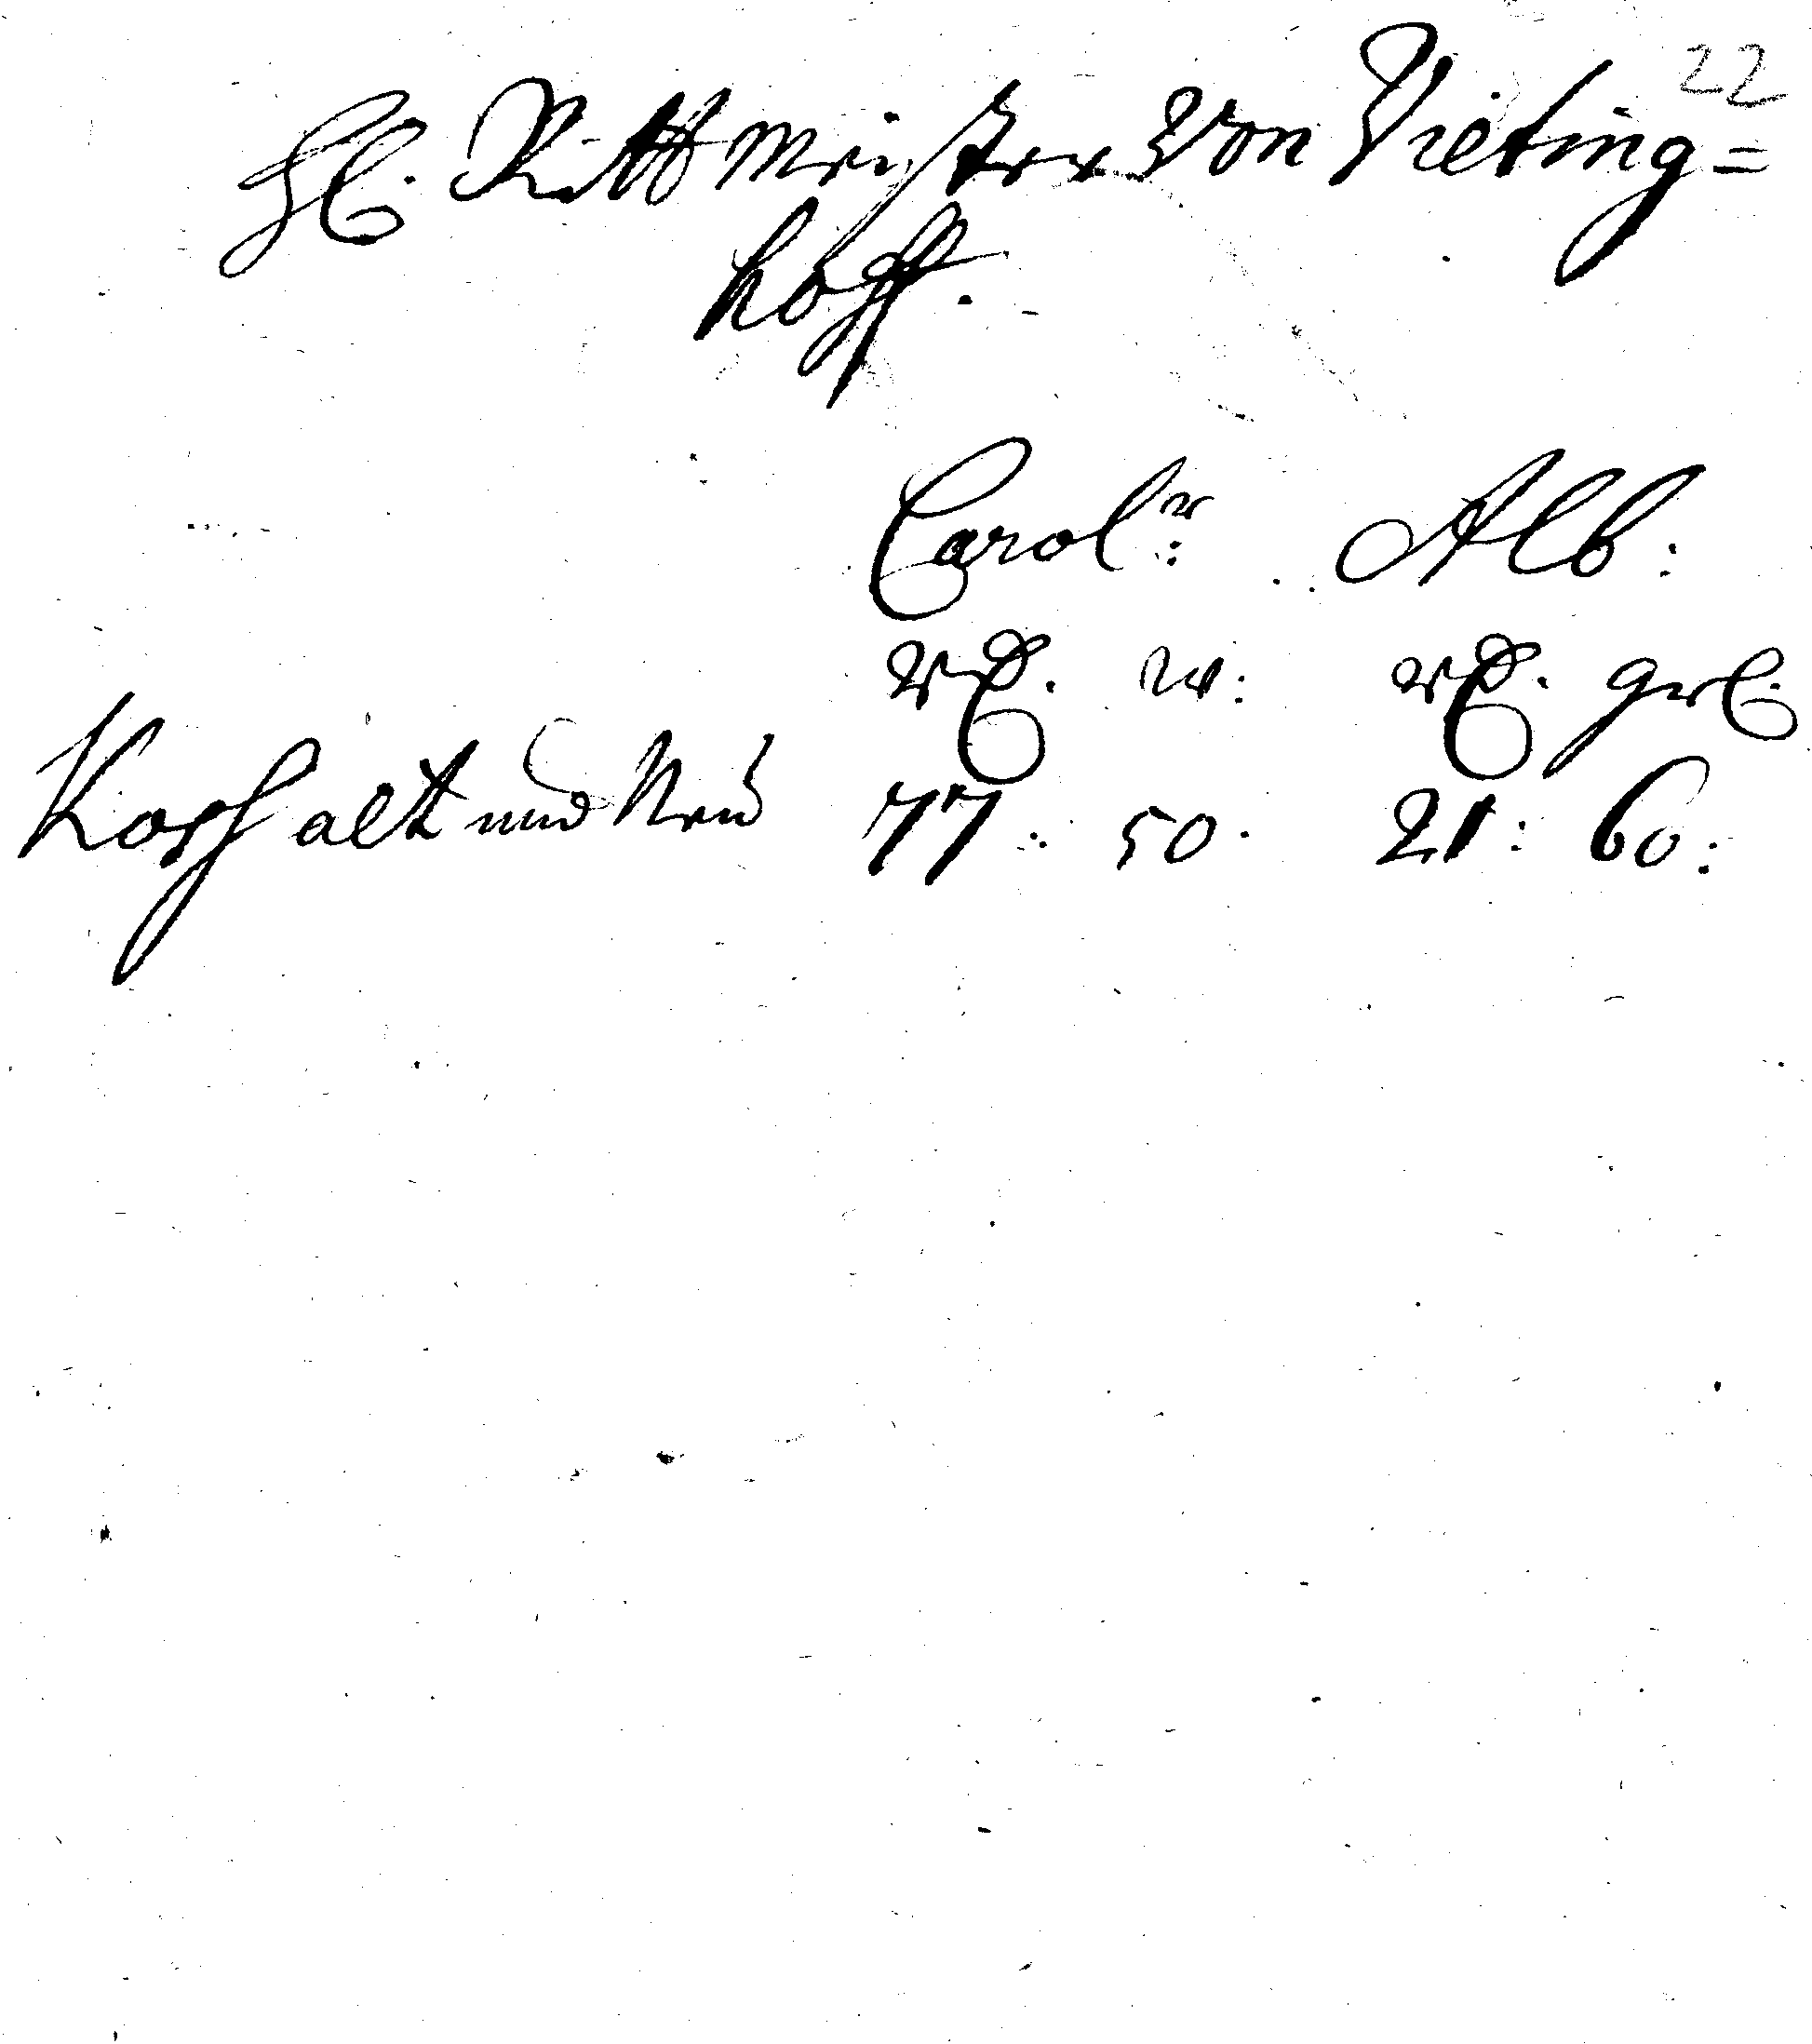 22
H. Rittmeister von Vieting=
hoff.
Carol: Alb:
Rthl. w: Rthl. grl.
Kosch alt und Neu 77: 50. 21: 60: